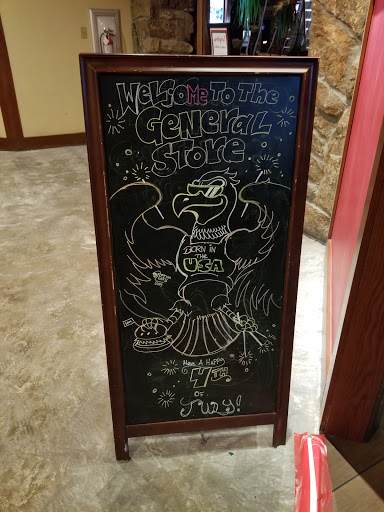 Welcome To The
General
Store
Born in
the
USA
Have A Happy
4TH
OF
July!